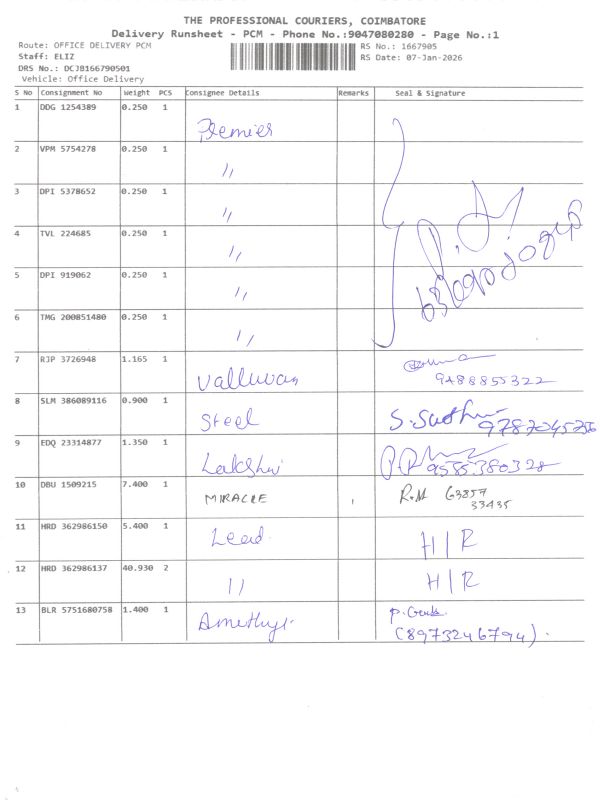 THE PROFESSIONAL COURIERS, COIMBATORE
Delivery Runsheet - PCM - Phone No.:9047080280 - Page No.:1
Route: OFFICE DELIVERY PCM
RS No.: 1667905
Staff: ELIZ
RS Date: 07-Jan-2026
DRS No.: DCJB166790501
Vehicle: Office Delivery
S No Consignment No Weight PCS Consignee Details Remarks Seal & Signature
1 DDG 1254389 0.250 1 Premier
2 VPM 5754278 0.250 1 〃
3 DPI 5378652 0.250 1 〃
4 TVL 224685 0.250 1 〃
5 DPI 919062 0.250 1 〃
6 TMG 200851480 0.250 1 〃
7 RJP 3726948 1.165 1 Valluvan 9488855322
8 SLM 386089116 0.900 1 Steel S. Sudh
9 EDQ 23314877 1.350 1 Lakshmi 9585380328
10 DBU 1509215 7.400 1 MIRACLE R.M 63857
33435
11 HRD 362986150 5.400 1 Lead. H/R
12 HRD 362986137 40.930 2 〃 H/R
13 BLR 5751680758 1.400 1 Amethyst
(8973246794).